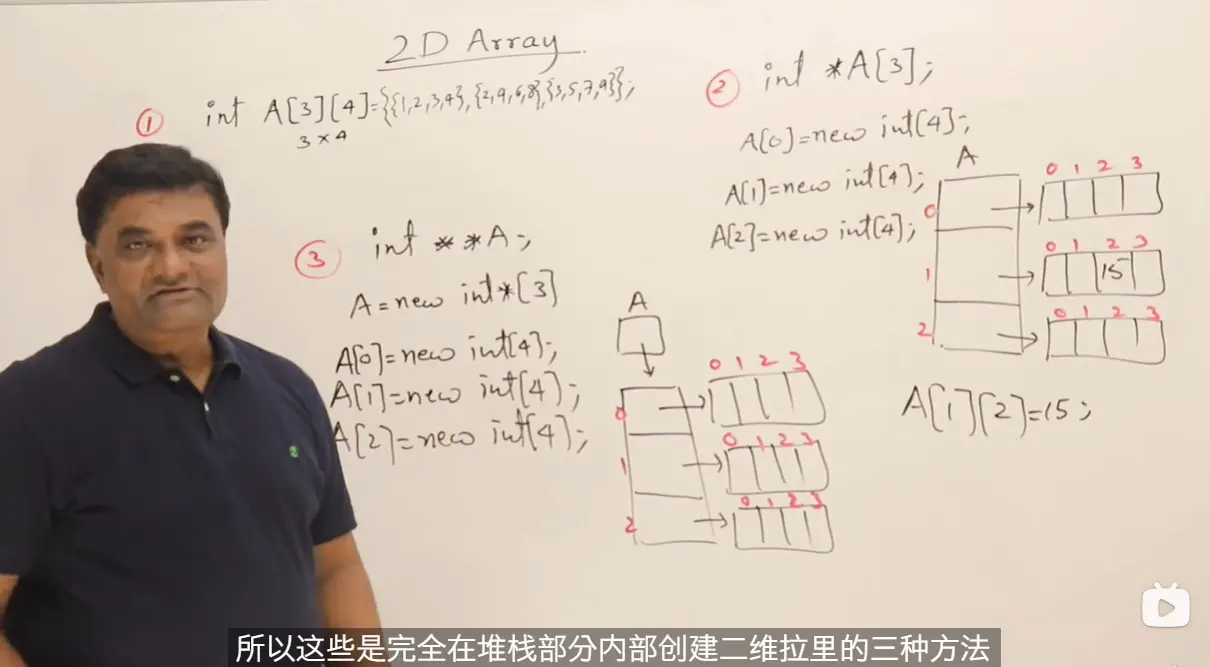 2D Array
① int A[3][4]={{1,2,3,4},{2,4,6,8},{3,5,7,9}};
3×4
② int *A[3];
A[0]=new int[4];
A[1]=new int[4];
A[2]=new int[4];
A
0 1 2 3
0
0 1 2 3
1
15
0 1 2 3
2
A[1][2]=15;
③ int **A;
A=new int*[3]
A[0]=new int[4];
A[1]=new int[4];
A[2]=new int[4];
A
0 1 2 3
0
0 1 2 3
1
0 1 2 3
2
所以这些是完全在堆栈部分内部创建二维拉里的三种方法